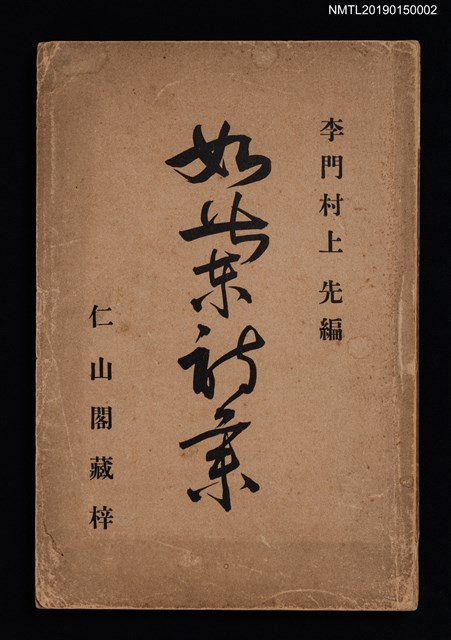 NMTL20190150002
李門村上先編
如柴詩
仁山閣藏梓